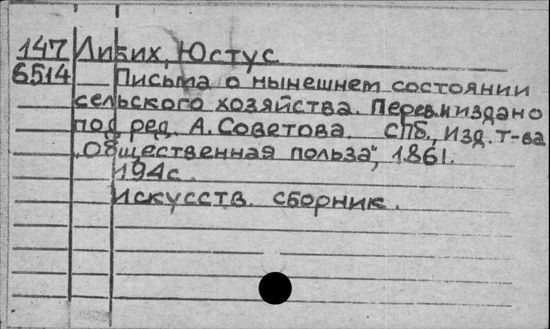 147 Либих, Юстус
6514 Письма о нынешнем состоянии
сельского хозяйства. Перев. и издано
под ред. А. Советова. СПб., Изд. т-ва
„Общественная польза", 1861.
194с.
Искусств. сборник.